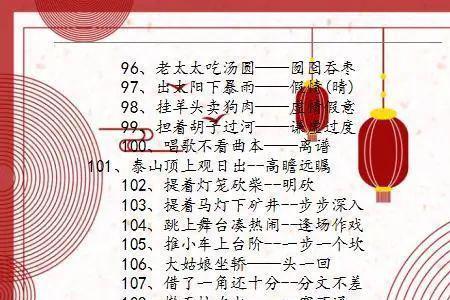 96、老太太吃汤圆——囫囵吞枣
97、出太阳下暴雨——假情(晴)
98、挂羊头卖狗肉——虚情假意
99、担着胡子过河——谦虚过度
100、唱歌不看曲本——离谱
101、泰山顶上观日出--高瞻远瞩
102、提着灯笼砍柴--明砍
103、提着马灯下矿井--步步深入
104、跳上舞台凑热闹--逢场作戏
105、推小车上台阶--一步一个坎
106、大姑娘坐轿——头一回
107、借了一角还十分--分文不差